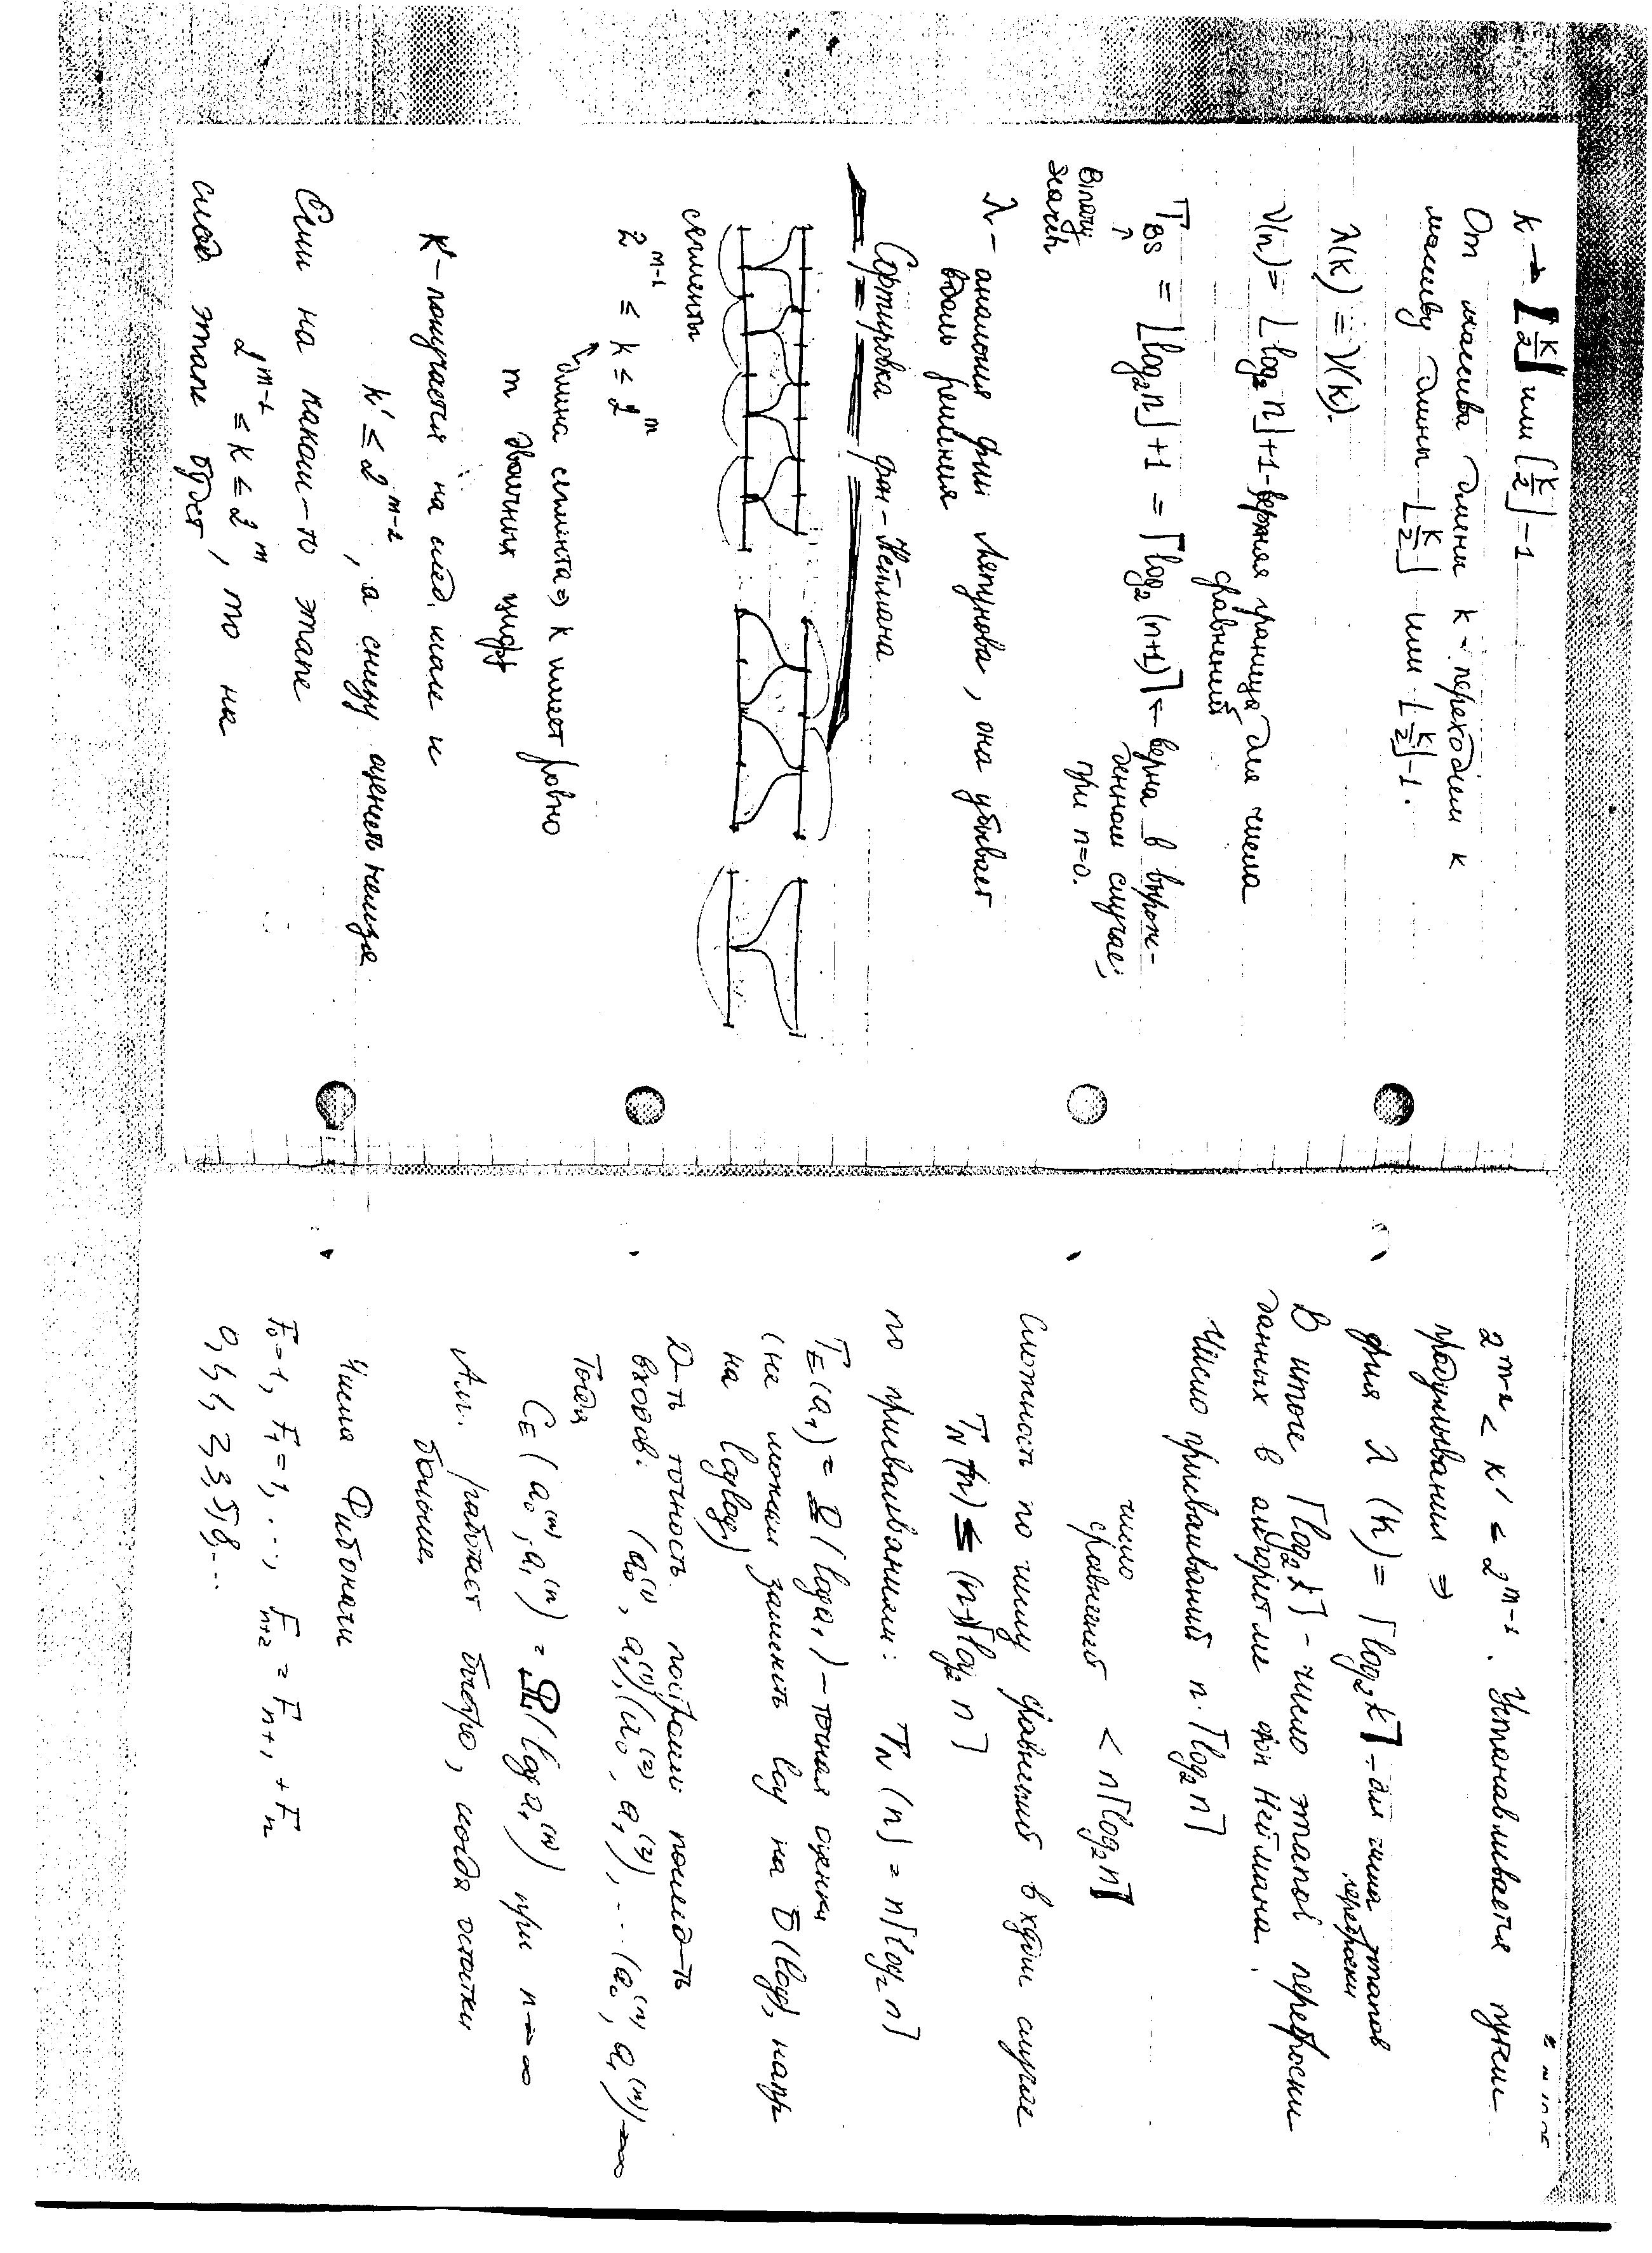 k → ⌊k/2⌋ или ⌊k/2⌋-1
От массива длины k - переходим к
массиву длины ⌊k/2⌋ или ⌊k/2⌋-1.
λ(k) = ν(k).
ν(n) = ⌊log₂ n⌋+1 - верхняя граница для числа
сравнений
T_BS = ⌊log₂ n⌋+1 = ⌈log₂ (n+1)⌉ ← верна в вырож-
денном случае:
при n=0.
Binary
search
λ - аналогия фии Ляпунова, она убывает
вдоль решения
Сортировка фон-Неймана
сегменты
2^(m-1) ≤ k ≤ 2^m
длина сегмента ⇒ k имеет ровно
m двоичных цифр
k' - получается на след. шаге и
k' ≤ 2^(m-1), а снизу оценить нельзя
Если на каком-то этапе
2^(m-1) ≤ k ≤ 2^m, то на
след этапе будет
2^(m-2) < k' ≤ 2^(m-1). Устанавливается путем
раздумывания ⇒
фия λ(k) = ⌈log₂ k⌉ - для числа этапов
переброски
В итоге ⌈log₂ k⌉ - число этапов переброски
данных в алгоритме фон Неймана.
Число присваиваний n·⌈log₂ n⌉
число
сравнений < n⌈log₂ n⌉
Сложность по числу сравнений в худшем случае
T_N(n) ≤ (n-1)⌈log₂ n⌉
по присваиваниям: T_N(n) = n⌈log₂ n⌉
T_E(a₁) = Ω(log a₁) - точная оценка
(не можем заменить log на ō(log), напр
на loglog)
Д-ть точность. построим послед-ть
входов: (a₀⁽¹⁾, a₁⁽¹⁾), (a₀⁽²⁾, a₁⁽²⁾), ... (a₀⁽ⁿ⁾, a₁⁽ⁿ⁾) → ∞
Тогда
C_E(a₀⁽ⁿ⁾, a₁⁽ⁿ⁾) = Ω(log a₁⁽ⁿ⁾) при n → ∞
Алг. работает быстро, когда остатки
большие.
Числа Фибоначи
F₀=1, F₁=1, ..., F_(n+2) = F_(n+1) + F_n
0, 1, 1, 2, 3, 5, 8, ...